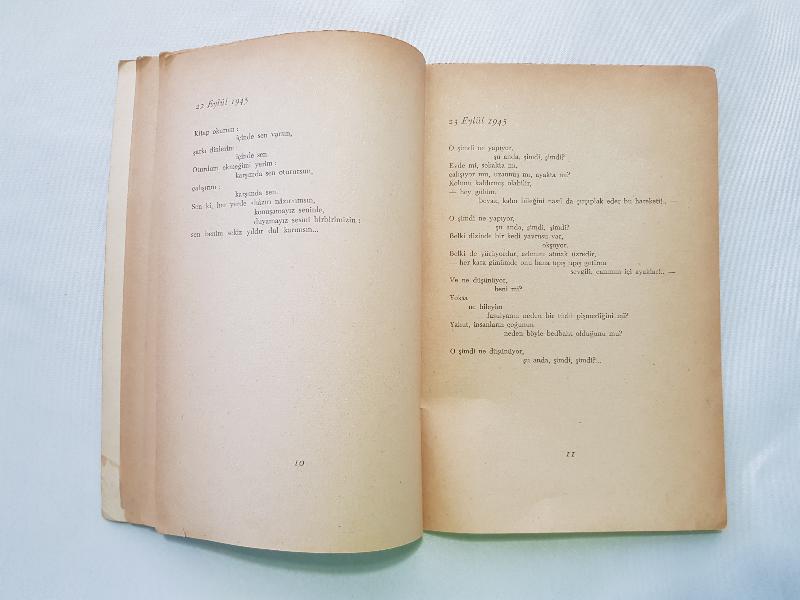 22 Eylül 1945
Kitap okurum :
içinde sen varsın,
şarkı dinlerim :
içinde sen.
Oturdum ekmeğimi yerim :
karşımda sen oturursun,
çalışırım :
karşımda sen.
Sen ki, her yerde «hâzırı nâzır»ımsın,
konuşamayız seninle,
duyamayız sesini birbirimizin :
sen benim sekiz yıldır dul karımsın...
10
23 Eylül 1945
O şimdi ne yapıyor,
şu anda, şimdi, şimdi?
Evde mi, sokakta mı,
çalışıyor mu, uzanmış mı, ayakta mı?
Kolunu kaldırmış olabilir,
— hey gülüm,
beyaz, kalın bileğini nasıl da çırçıplak eder bu hareketi!.. —
O şimdi ne yapıyor,
şu anda, şimdi, şimdi?
Belki dizinde bir kedi yavrusu var,
okşuyor.
Belki de yürüyordur, adımını atmak üzredir,
— her kara günümde onu bana tıpış tıpış getiren
sevgili, canımın içi ayaklar!.. —
Ve ne düşünüyor,
beni mi?
Yoksa
ne bileyim
fasulyanın neden bir türlü pişmediğini mi?
Yahut, insanların çoğunun
neden böyle bedbaht olduğunu mu?
O şimdi ne düşünüyor,
şu anda, şimdi, şimdi?...
11